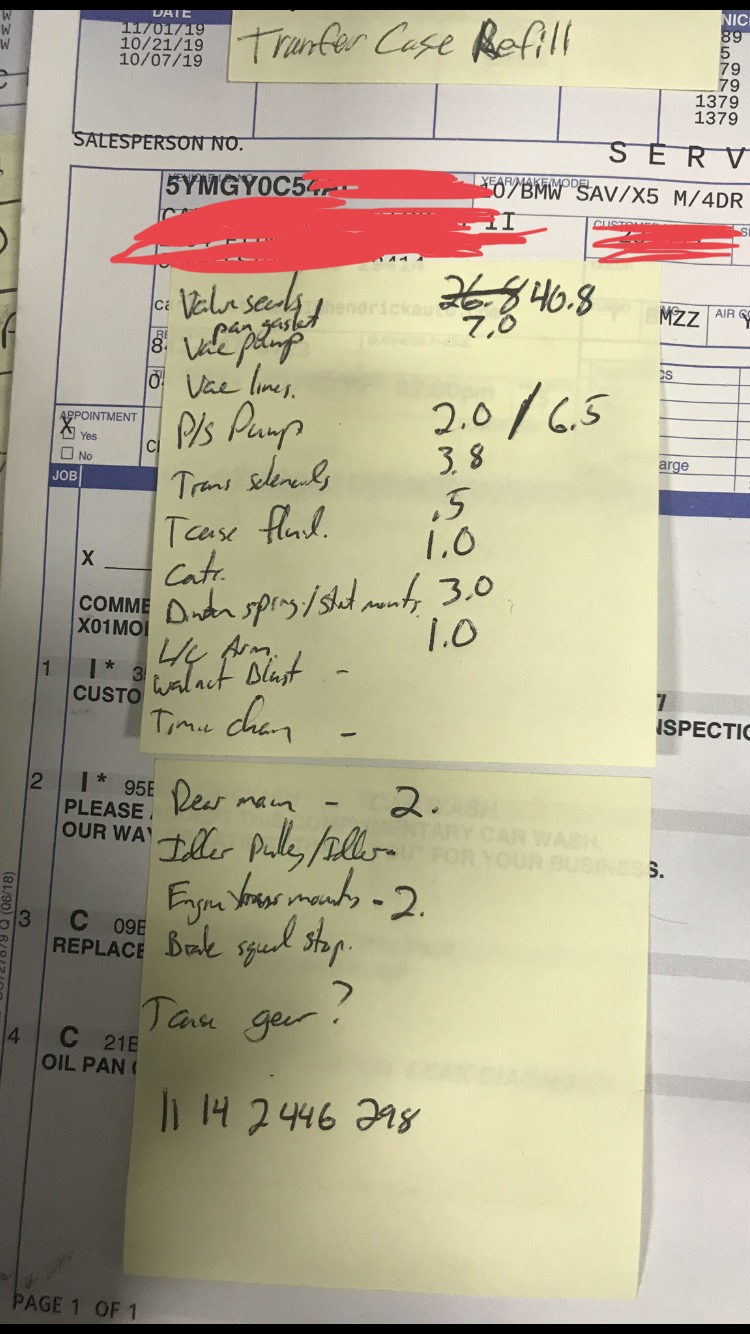 DATE
11/01/19
10/21/19
10/07/19
Tranfer Case Refill
NIC
89
5
79
79
1379
1379
SALESPERSON NO.
S E R V
5YMGY0C54
YEAR/MAKE/MODEL
10/BMW SAV/X5 M/4DR
II
CUSTOMER
Valve seals 26.8 40.8
pan gasket 7.0
Vac pump
Vac lines.
P/S Pump 2.0 / 6.5
Trans solenoids 3.8
Tcase fluid. .5
1.0
3.0
L/C Arm. 1.0
Walnut Blast -
chain -
MZZ
AIR CO
Y
CS
arge
APPOINTMENT
X
Yes
No
JOB
X
COMME
X01MO
1 I* 3
CUSTO
NSPECTIO
2 I* 95E
PLEASE
OUR WA
S.
3 C 09E
REPLACE
4 C 21E
OIL PAN
Rear main - 2.
Idler Pulley/Idler-
Engin trans mounts - 2.
Brake squeal stop.
Tcase gear?
11 14 2 446 298
Q (06/18)
PAGE 1 OF 1